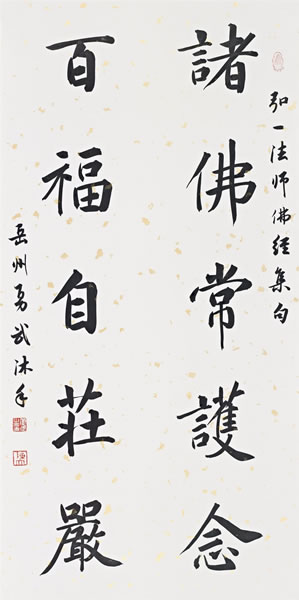 弘一法师佛经集句
諸佛常護念
百福自莊嚴
岳州勇武沐手